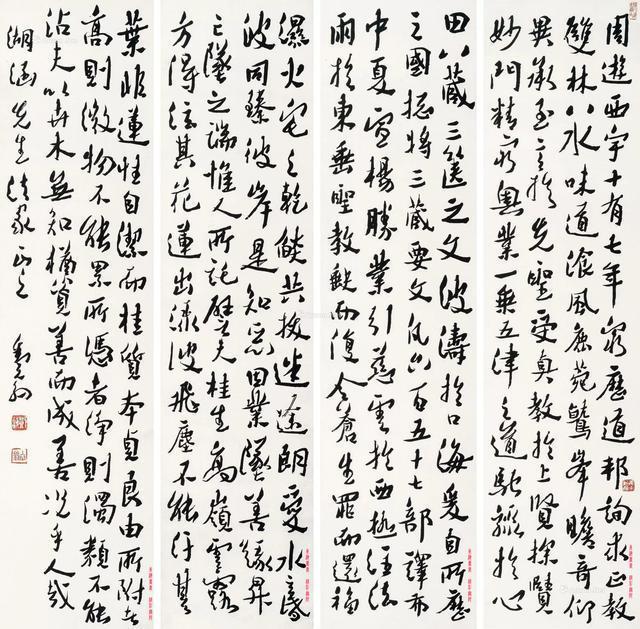 周遊西宇十有七年窮歷道邦詢求正教
雙林八水味道湌風鹿菀鷲峯瞻奇仰
異承至言於先聖受真教於上賢探賾
妙門精窮奧業一乘五律之道馳驟於心
田八藏三篋之文波濤於口海爰自所歷
之國揔將三藏要文凡六百五十七部譯布
中夏宣揚勝業引慈雲於西極注法
雨於東垂聖教缺而復全蒼生罪而還福
濕火宅之乾燄共拔迷途朗愛水之昏
波同臻彼岸是知惡因業墜善緣昇
〻墜之端惟人所託譬夫桂生高嶺雲露
方得泫其花蓮出淥波飛塵不能汙其
葉非蓮性自潔而桂質本貞良由所附者
高則微物不能累所憑者淨則濁類不能
沾夫以卉木無知猶資善而成善況乎人哉
湖涵先生法家正之